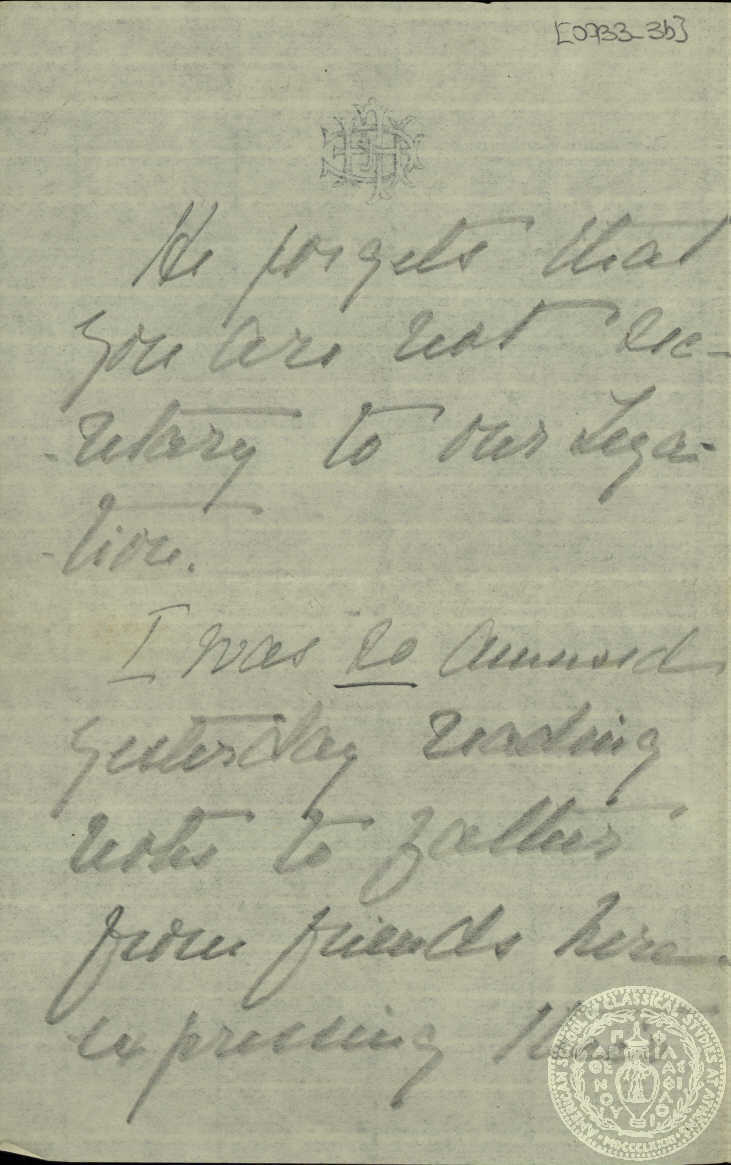 [0733-3b]
He forgets that
you are not sec-
-retary to our Lega-
-tion.
I was so amused
yesterday reading
notes to father
from friends here
expressing their
AMERICAN SCHOOL OF CLASSICAL STUDIES AT ATHENS
ΠΑΡ
ΘΕ
ΝΟΥ
ΦΙΛ
ΑΣ
ΦΙΛΟ
MDCCCLXXXI